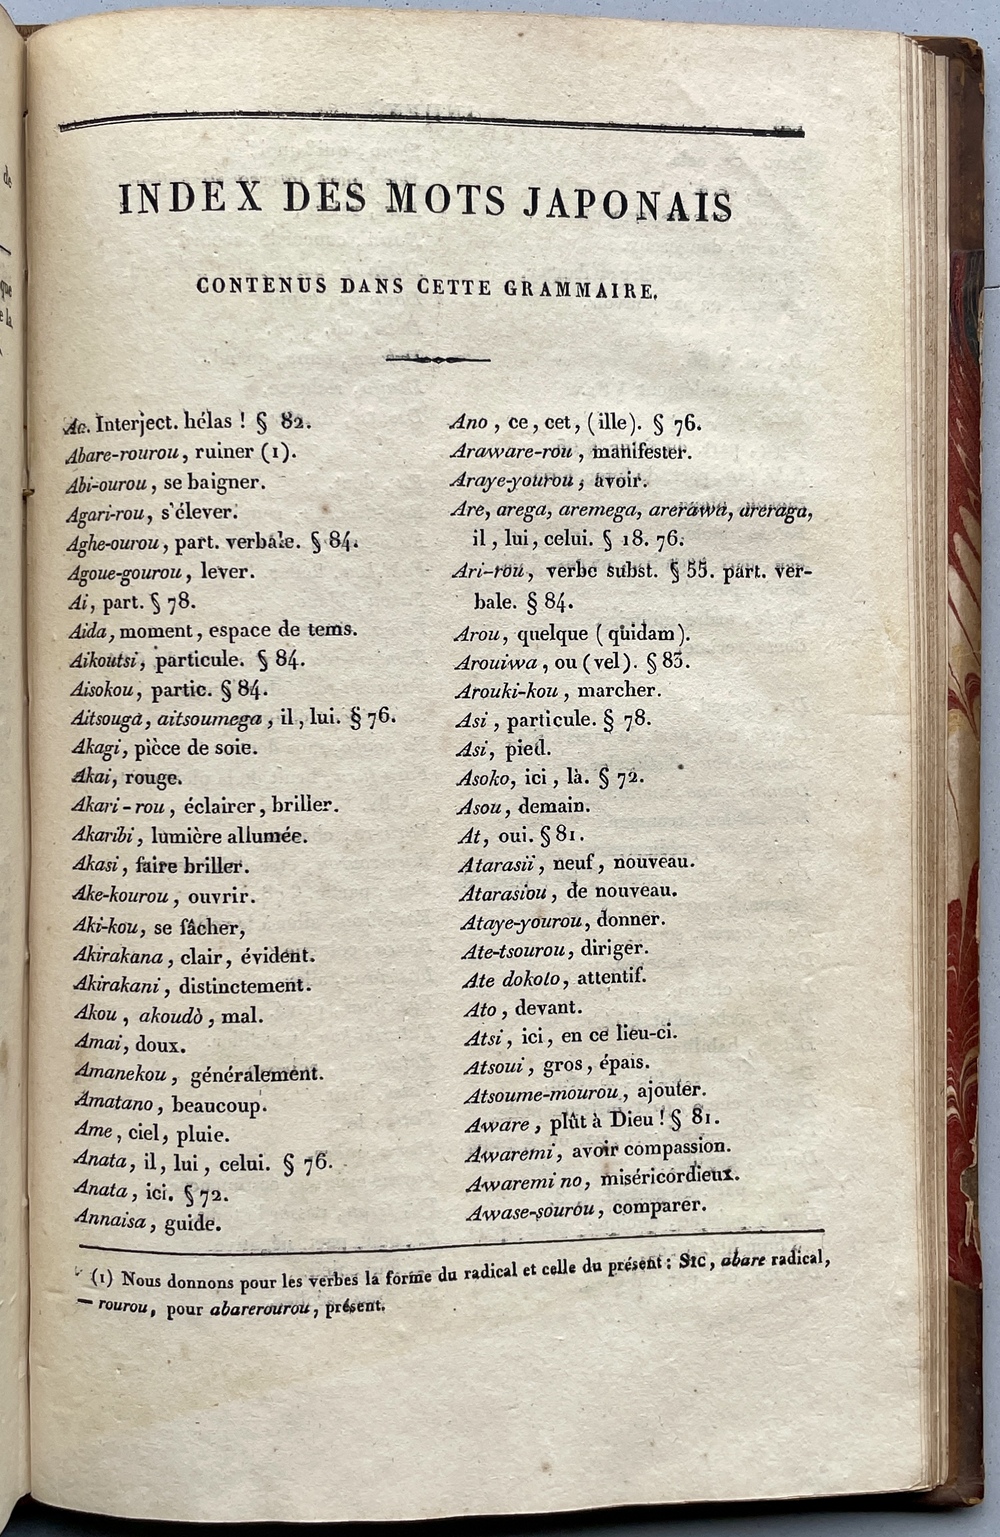 INDEX DES MOTS JAPONAIS
CONTENUS DANS CETTE GRAMMAIRE.
Aa. Interject. hélas ! § 82.
Abare-rourou, ruiner (1).
Abi-ourou, se baigner.
Agari-rou, s'élever.
Aghe-ourou, part. verbale. § 84.
Agoue-gourou, lever.
Ai, part. § 78.
Aida, moment, espace de tems.
Aikoutsi, particule. § 84.
Aisokou, partic. § 84.
Aitsouga, aitsoumega, il, lui. § 76.
Akagi, pièce de soie.
Akai, rouge.
Akari-rou, éclairer, briller.
Akaribi, lumière allumée.
Akasi, faire briller.
Ake-kourou, ouvrir.
Aki-kou, se fâcher,
Akirakana, clair, évident.
Akirakani, distinctement.
Akou, akoudò, mal.
Amai, doux.
Amanekou, généralement.
Amatano, beaucoup.
Ame, ciel, pluie.
Anata, il, lui, celui. § 76.
Anata, ici. § 72.
Annaisa, guide.
Ano, ce, cet, (ille). § 76.
Araware-rou, manifester.
Araye-yourou, avoir.
Are, arega, aremega, arerawa, areraga,
il, lui, celui. § 18. 76.
Ari-rou, verbe subst. § 55. part. ver-
bale. § 84.
Arou, quelque (quidam).
Arouiwa, ou (vel). § 83.
Arouki-kou, marcher.
Asi, particule. § 78.
Asi, pied.
Asoko, ici, là. § 72.
Asou, demain.
At, oui. § 81.
Atarasii, neuf, nouveau.
Atarasiou, de nouveau.
Ataye-yourou, donner.
Ate-tsourou, diriger.
Ate dokolo, attentif.
Ato, devant.
Atsi, ici, en ce lieu-ci.
Atsoui, gros, épais.
Atsoume-mourou, ajouter.
Aware, plût à Dieu ! § 81.
Awaremi, avoir compassion.
Awaremi no, miséricordieux.
Awase-sourou, comparer.
(1) Nous donnons pour les verbes la forme du radical et celle du présent : SIC, abare radical,
— rourou, pour abarerourou, présent.
de
que
e la